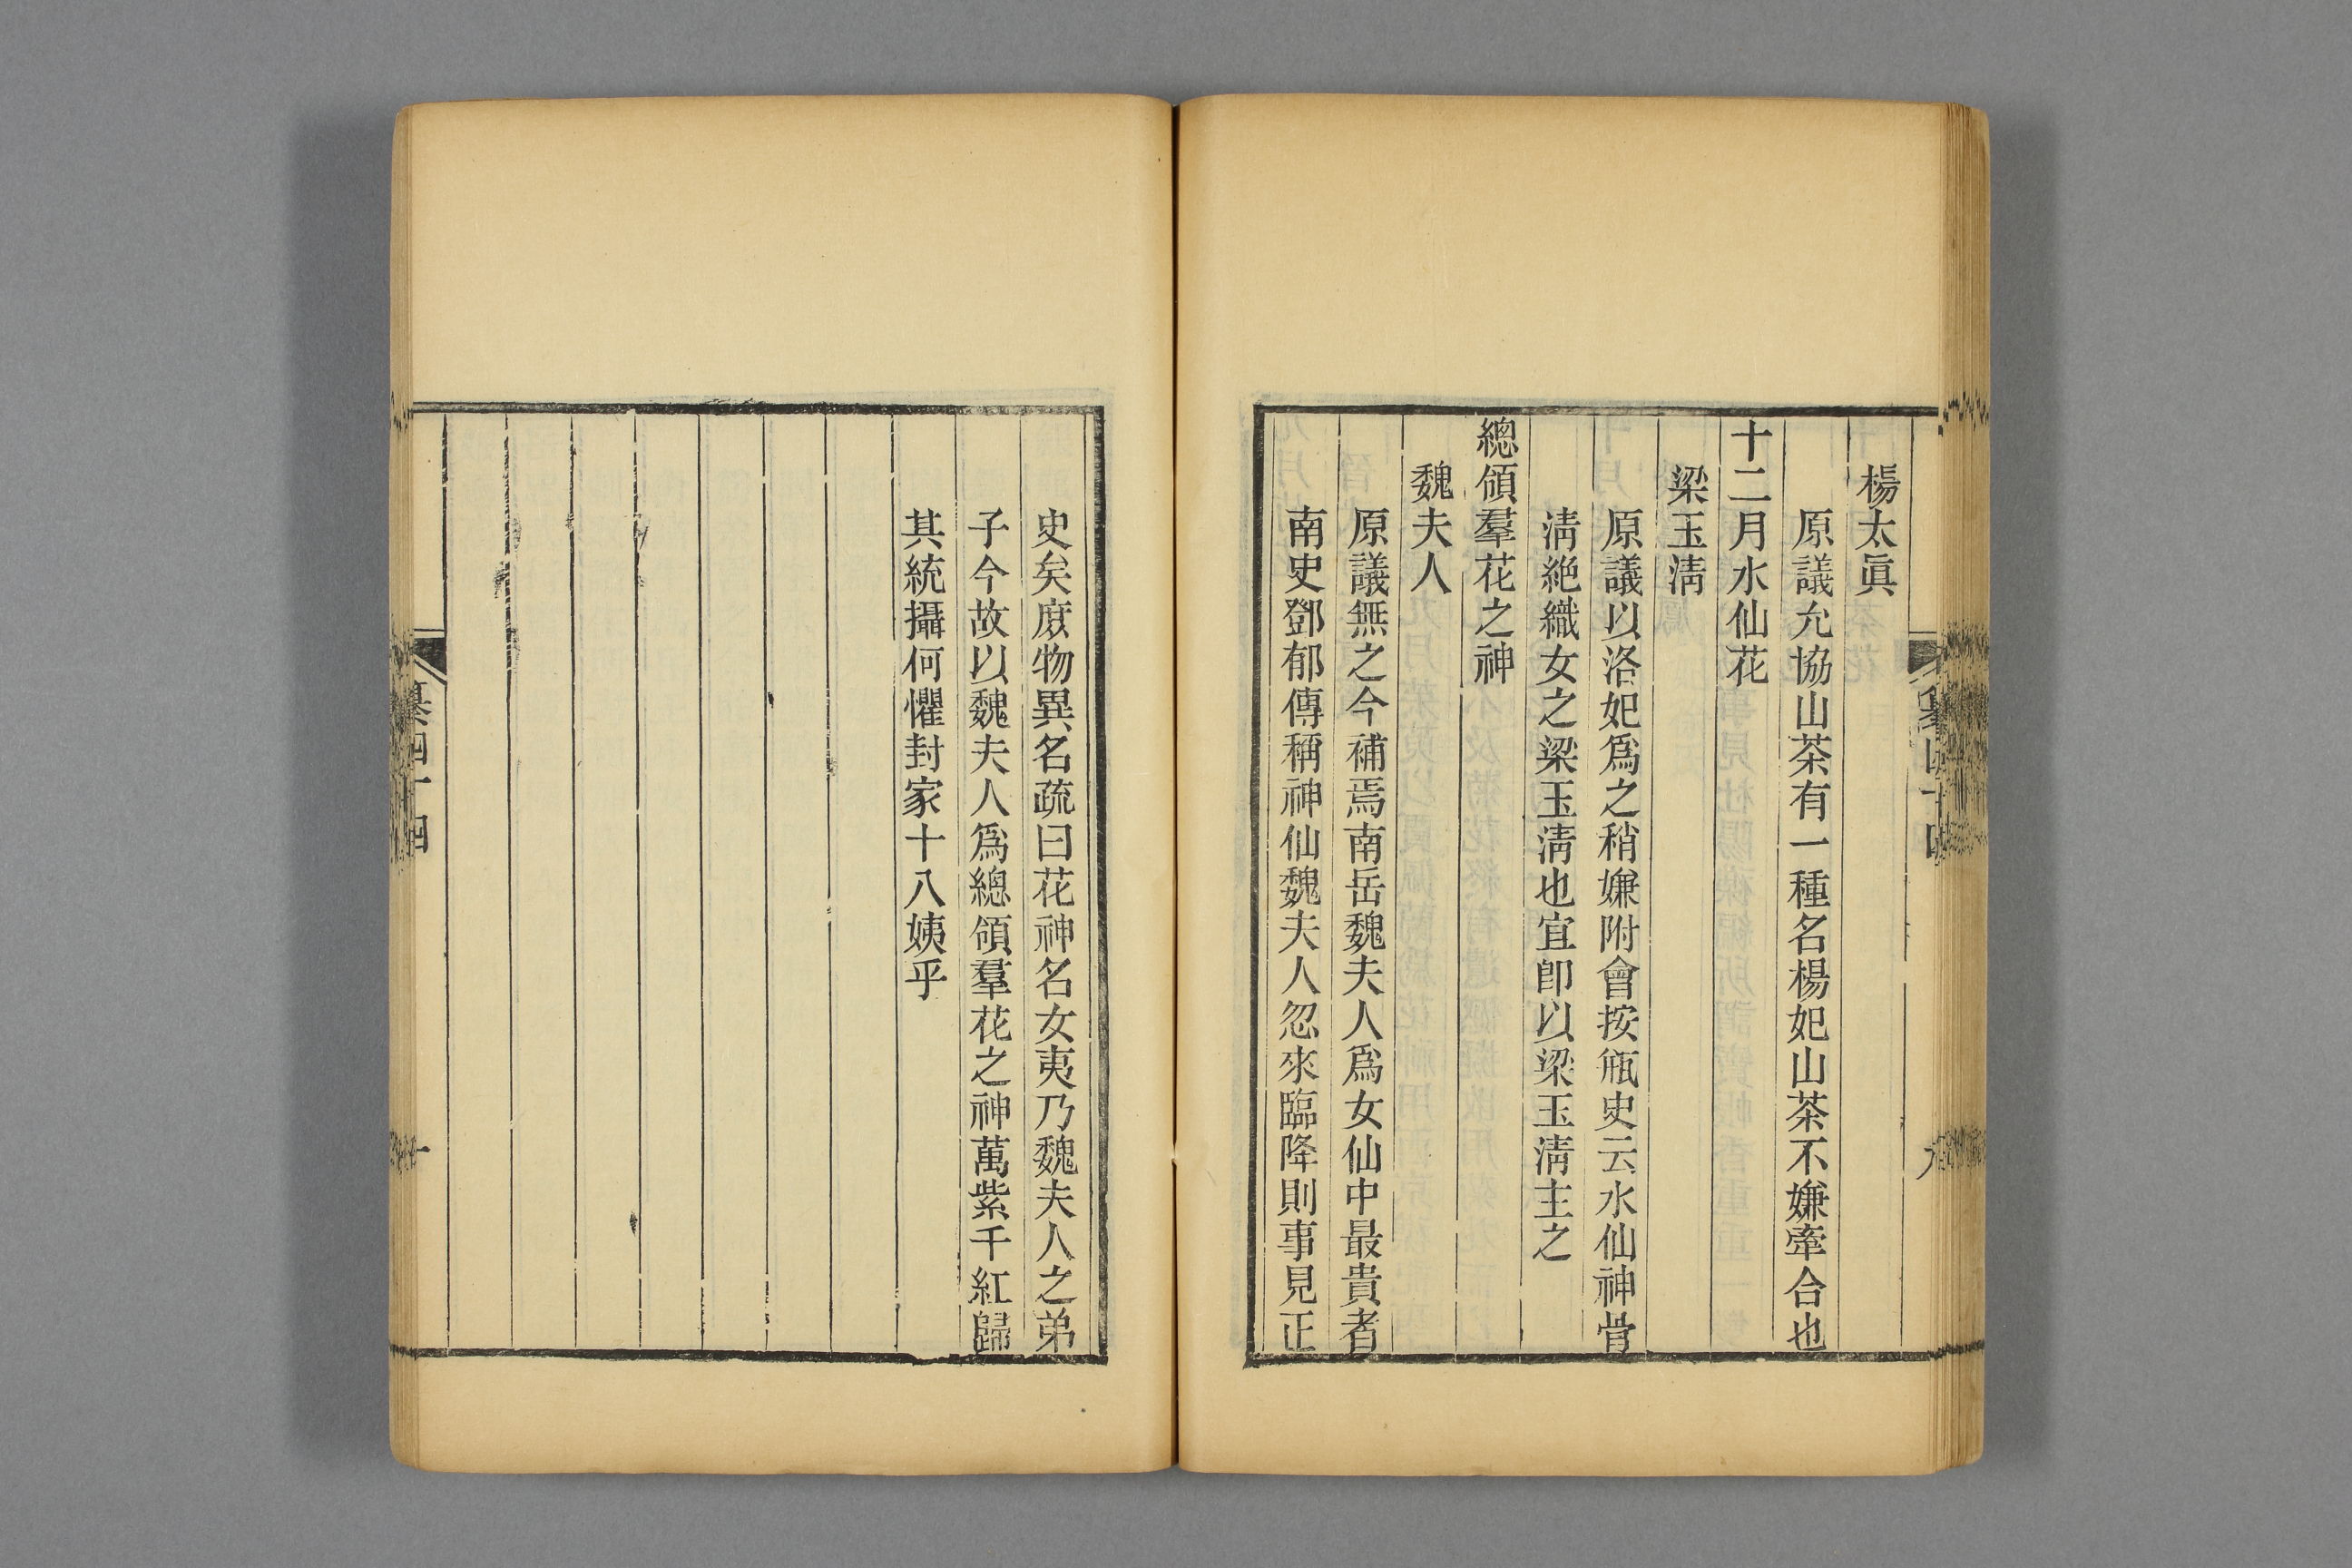 楊太眞
原議允協山茶有一種名楊妃山茶不嫌牽合也
十二月水仙花
梁玉淸
原議以洛妃爲之稍嫌附會按瓶史云水仙神骨
淸絶織女之梁玉淸也宜卽以梁玉淸主之
總領羣花之神
魏夫人
原議無之今補焉南岳魏夫人爲女仙中最貴者
南史鄧郁傳稱神仙魏夫人忽來臨降則事見正
史矣庶物異名疏曰花神名女夷乃魏夫人之弟
子今故以魏夫人爲總領羣花之神萬紫千紅歸
其統攝何懼封家十八姨乎
纂四十四